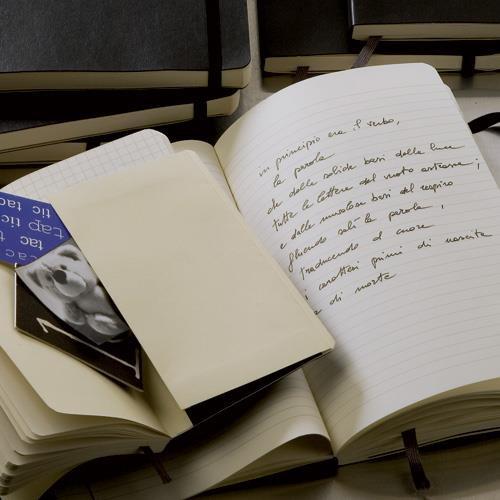 tic tac
tap tic
tac
in principio era il verbo,
la parola
che dalle calide basi della luna
tutte le lettere del vuoto
e dalle basi del respiro
salì la parola,
traducendo al cuore
i caratteri primi di nascita
e di morte